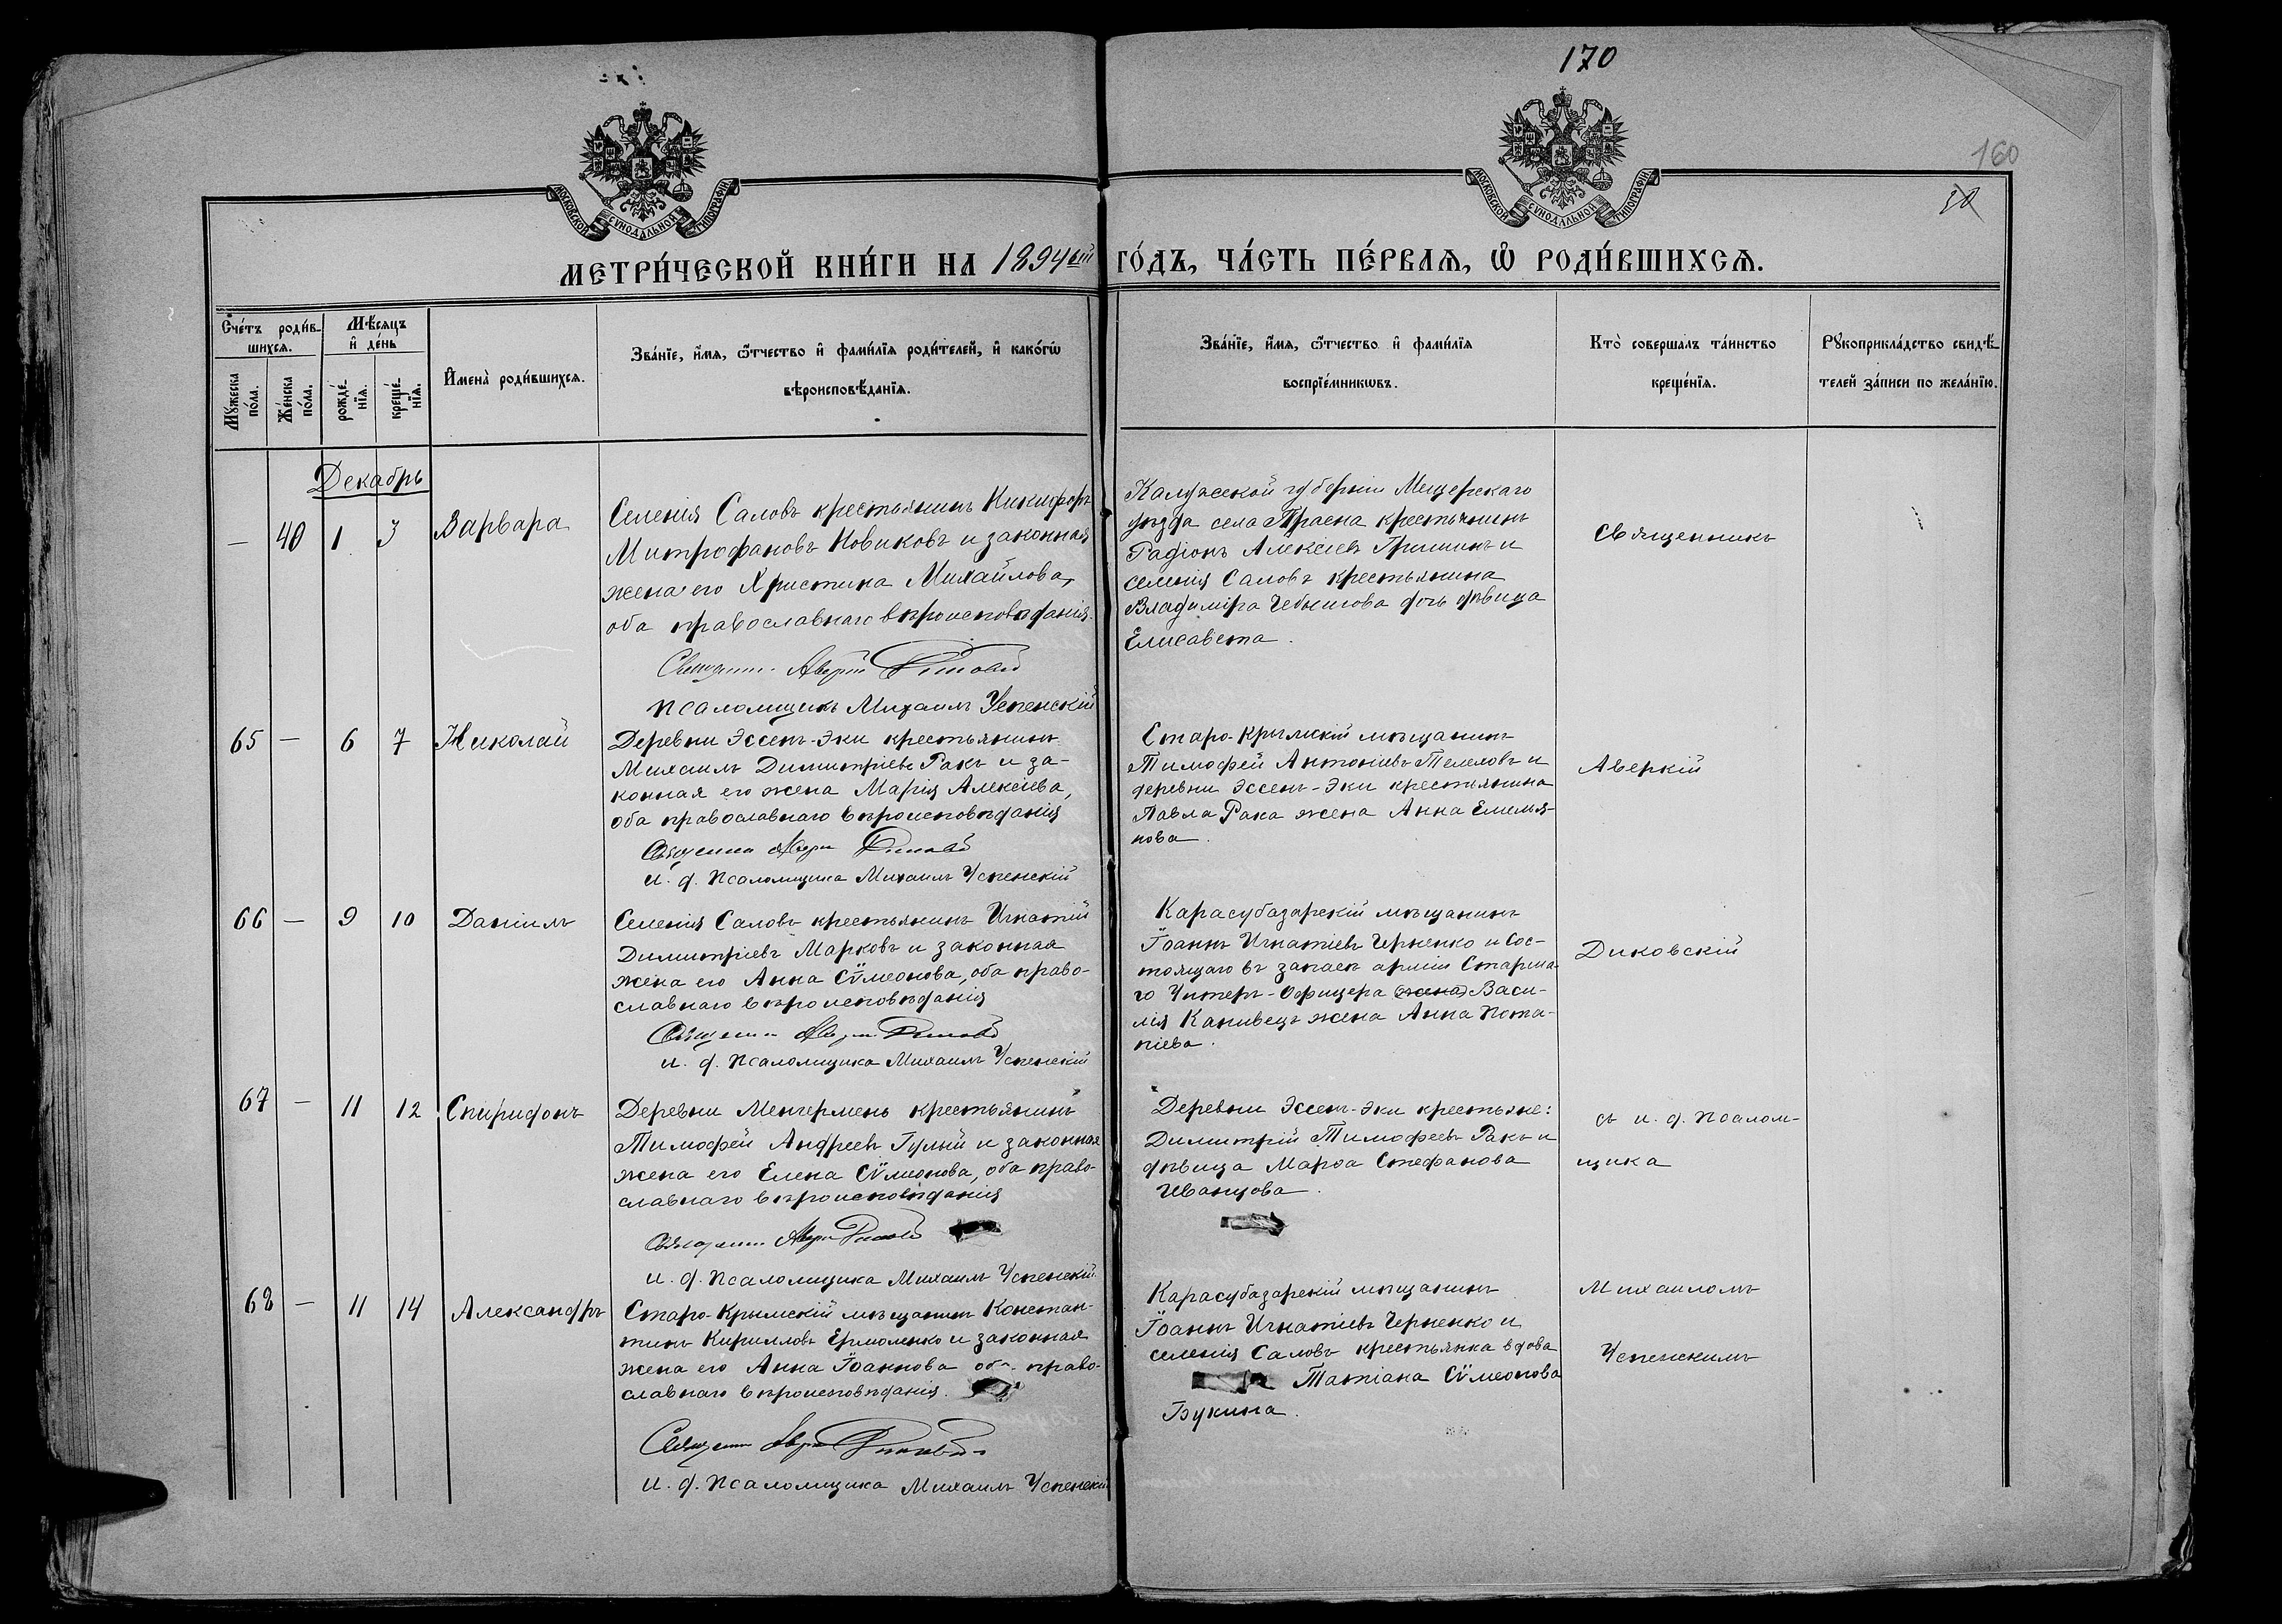 170
160
30
МОСКОВСКОЙ СѴНОДАЛЬНОЙ ТИПОГРАФІИ
МОСКОВСКОЙ СѴНОДАЛЬНОЙ ТИПОГРАФІИ
МЕТРИ́ЧЕСКОЙ КНИ́ГИ НА 1894ый ГО́ДЪ, ЧА́СТЬ ПЕ́РВАѦ, Ѡ҆ РОДИ́ВШИХСѦ.
Счéтъ роди́в-
шихсѧ.
Мꙋ́жеска по́ла.
Же́нска по́ла.
Мѣ́сѧцъ
и҆ де́нь
рожде́нїѧ.
креще́нїѧ.
И҆мена̀ роди́вшихсѧ.
Зва́нїе, и҆́мѧ, ѻ҆́тчество и҆ фами́лїѧ роди́телей, и҆ како́гѡ
вѣроисповѣ́данїѧ.
Зва́нїе, и҆́мѧ, ѻ҆́тчество и҆ фами́лїѧ
воспрїе́мникѡвъ.
Кто̀ совершалъ та́инство
креще́нїѧ.
Рꙋкоприкла́дство свидѣ́-
телей за́писи по жела́нїю.
Декабрь
— 40 1 3 Варвара
Селенія Саловъ крестьянинъ Никифоръ
Митрофановъ Новиковъ и законная
жена его Христина Михайлова,
оба православнаго вѣроисповѣданія.
Священникъ Аверкій Диковскій
Псаломщикъ Михаилъ Успенскій
Калужской губерніи Мещерскаго
уѣзда села крестьянинъ
Радіонъ Алексіевъ Гришинъ и
селенія Саловъ крестьянина
Владиміра дочь дѣвица
Елисавета.
Священникъ
65 — 6 7 Николай
Деревни Эссенъ-Эки крестьянинъ
Михаилъ Димитріевъ Ракъ и за-
конная его жена Марія Алексіева,
оба православнаго вѣроисповѣданія
Священникъ Аверкій Диковскій
И. д. Псаломщика Михаилъ Успенскій
Старо-Крымскій мѣщанинъ
Тимофей Антоніевъ и
деревни Эссенъ-Эки крестьянина
Павла Рака жена Анна Емелья-
нова.
Аверкій
66 — 9 10 Даніилъ
Селенія Саловъ крестьянинъ Игнатій
Димитріевъ Марковъ и законная
жена его Анна Сѵмеонова, оба право-
славнаго вѣроисповѣданія
Священникъ Аверкій Диковскій
и. д. Псаломщика Михаилъ Успенскій
Карасубазарскій мѣщанинъ
Іоаннъ Игнатіевъ Черненко и Сос-
тоящаго въ запасѣ арміи Старша-
го Унтеръ-Офицера (жена) Васи-
лія Канивецъ жена Анна Пота-
піева.
Диковскій
67 — 11 12 Спиридонъ
Деревни Менгермень крестьянинъ
Тимофей Андреевъ Гулый и законная
жена его Елена Сѵмеонова, оба право-
славнаго вѣроисповѣданія
Священникъ Аверкій Диковскій
и. д. Псаломщика Михаилъ Успенскій.
Деревни Эссенъ-Эки крестьяне:
Димитрій Тимофеевъ Ракъ и
дѣвица Марѳа Стефанова
Иванцова.
съ и. д. Псалом-
щика
68 — 11 14 Александръ
Старо-Крымскій мѣщанинъ Констан-
тинъ Кирилловъ Ермоленко и законная
жена его Анна Іоаннова оба право-
славнаго вѣроисповѣданія.
Священникъ Аверкій Диковскій
И. д. Псаломщика Михаилъ Успенскій
Карасубазарскій мѣщанинъ
Іоаннъ Игнатіевъ Черненко и
селенія Саловъ крестьянка вдова
Татіана Сѵмеонова
Букина.
Михаиломъ
Успенскимъ